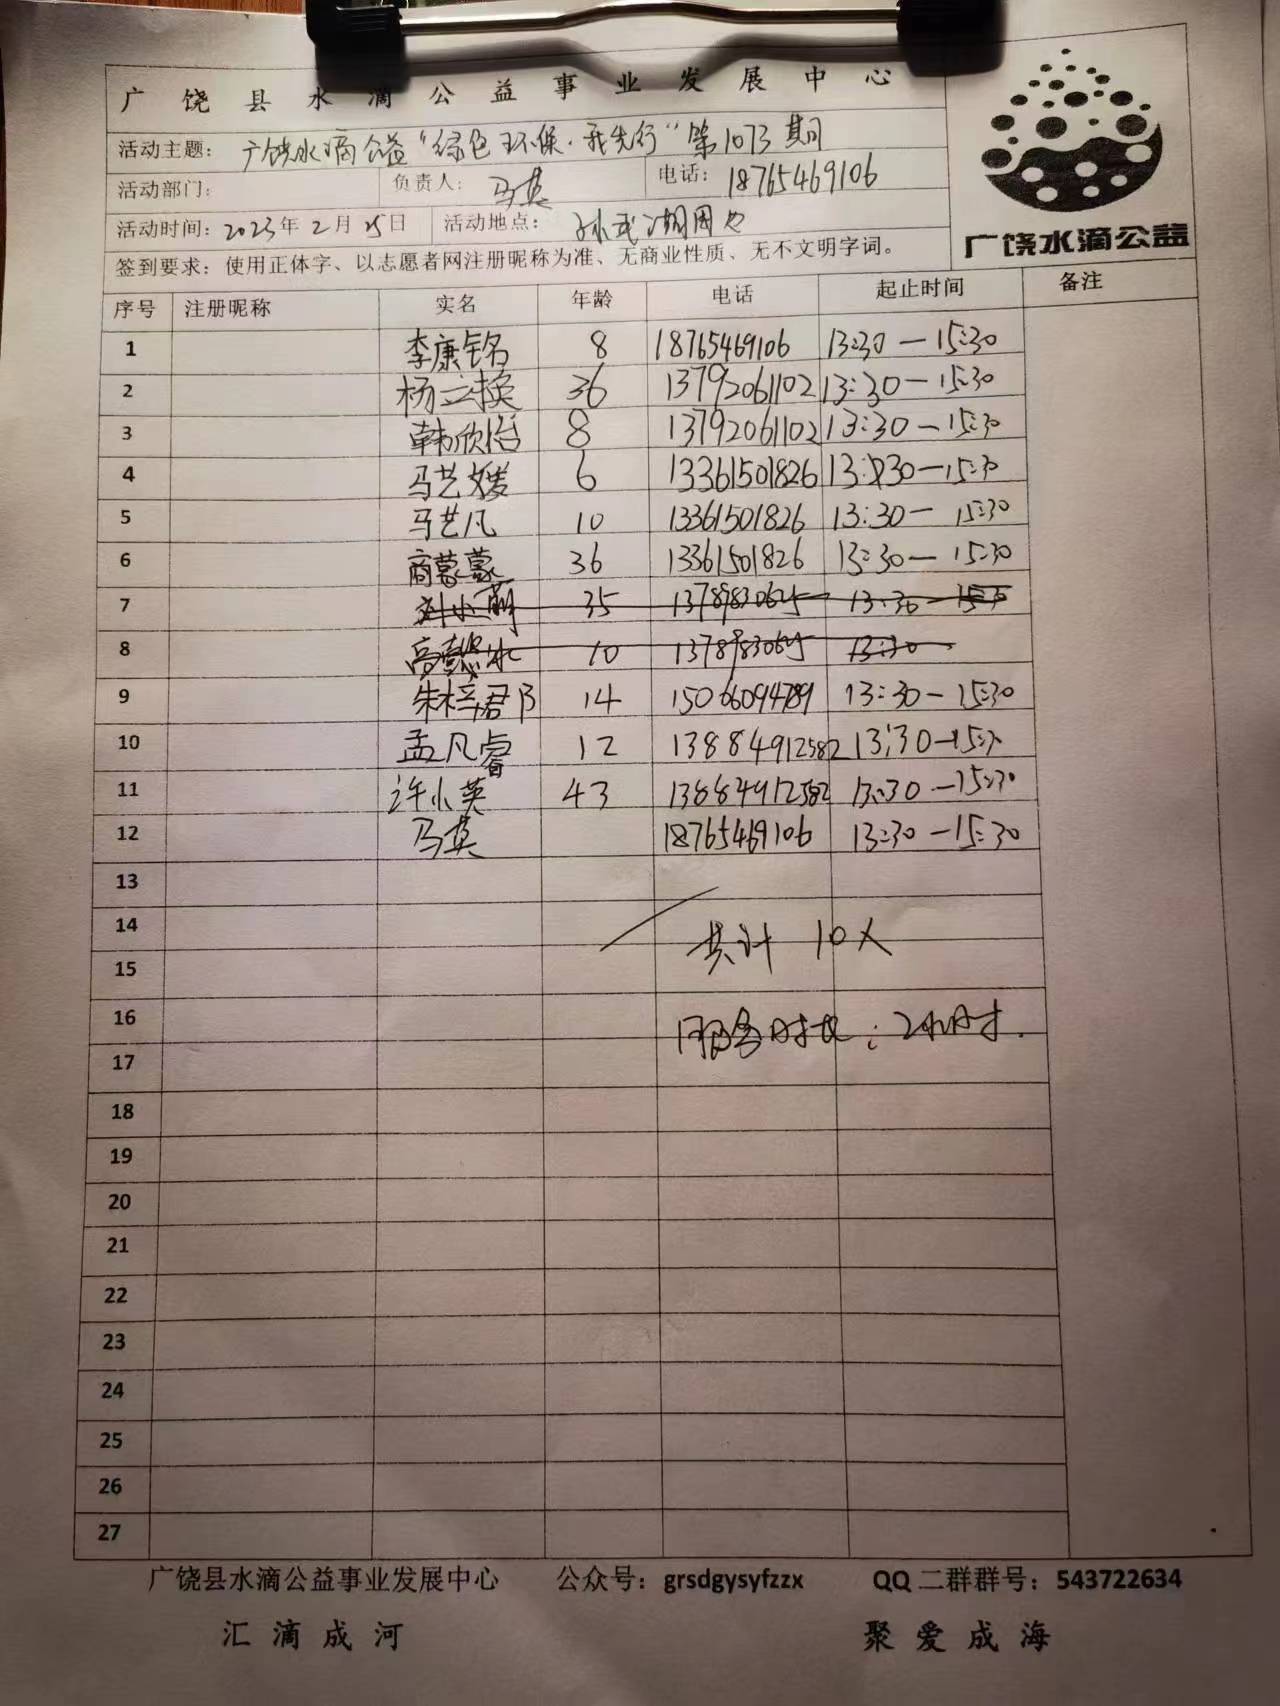 广饶县水滴公益事业发展中心
活动主题：广饶水滴公益“绿色环保·我先行”第1073期
活动部门： 负责人：马英 电话：18765469106
活动时间：2023年2月25日 活动地点：孙武湖周边
广饶水滴公益
签到要求：使用正体字、以志愿者网注册昵称为准、无商业性质、无不文明字词。
序号 注册昵称 实名 年龄 电话 起止时间 备注
1 李康铭 8 18765469106 13:30—15:30
2 杨立换 36 13792061102 13:30—15:30
3 韩欣怡 8 13792061102 13:30—15:30
4 马艺媛 6 13361501826 13:30—15:30
5 马艺凡 10 13361501826 13:30—15:30
6 商蒙蒙 36 13361501826 13:30—15:30
7 刘小萌 35 13:30—15:30
8 10 13:30—
9 朱梓君 14 13:30—15:30
10 孟凡睿 12 13884912582 13:30—15:30
11 许小英 43 13884912582 13:30—15:30
12 马英 18765469106 13:30—15:30
13
14 共计 10人
15
16 服务时长：2小时.
17
18
19
20
21
22
23
24
25
26
27
广饶县水滴公益事业发展中心 公众号：grsdgysyfzzx QQ二群群号：543722634
汇滴成河 聚爱成海